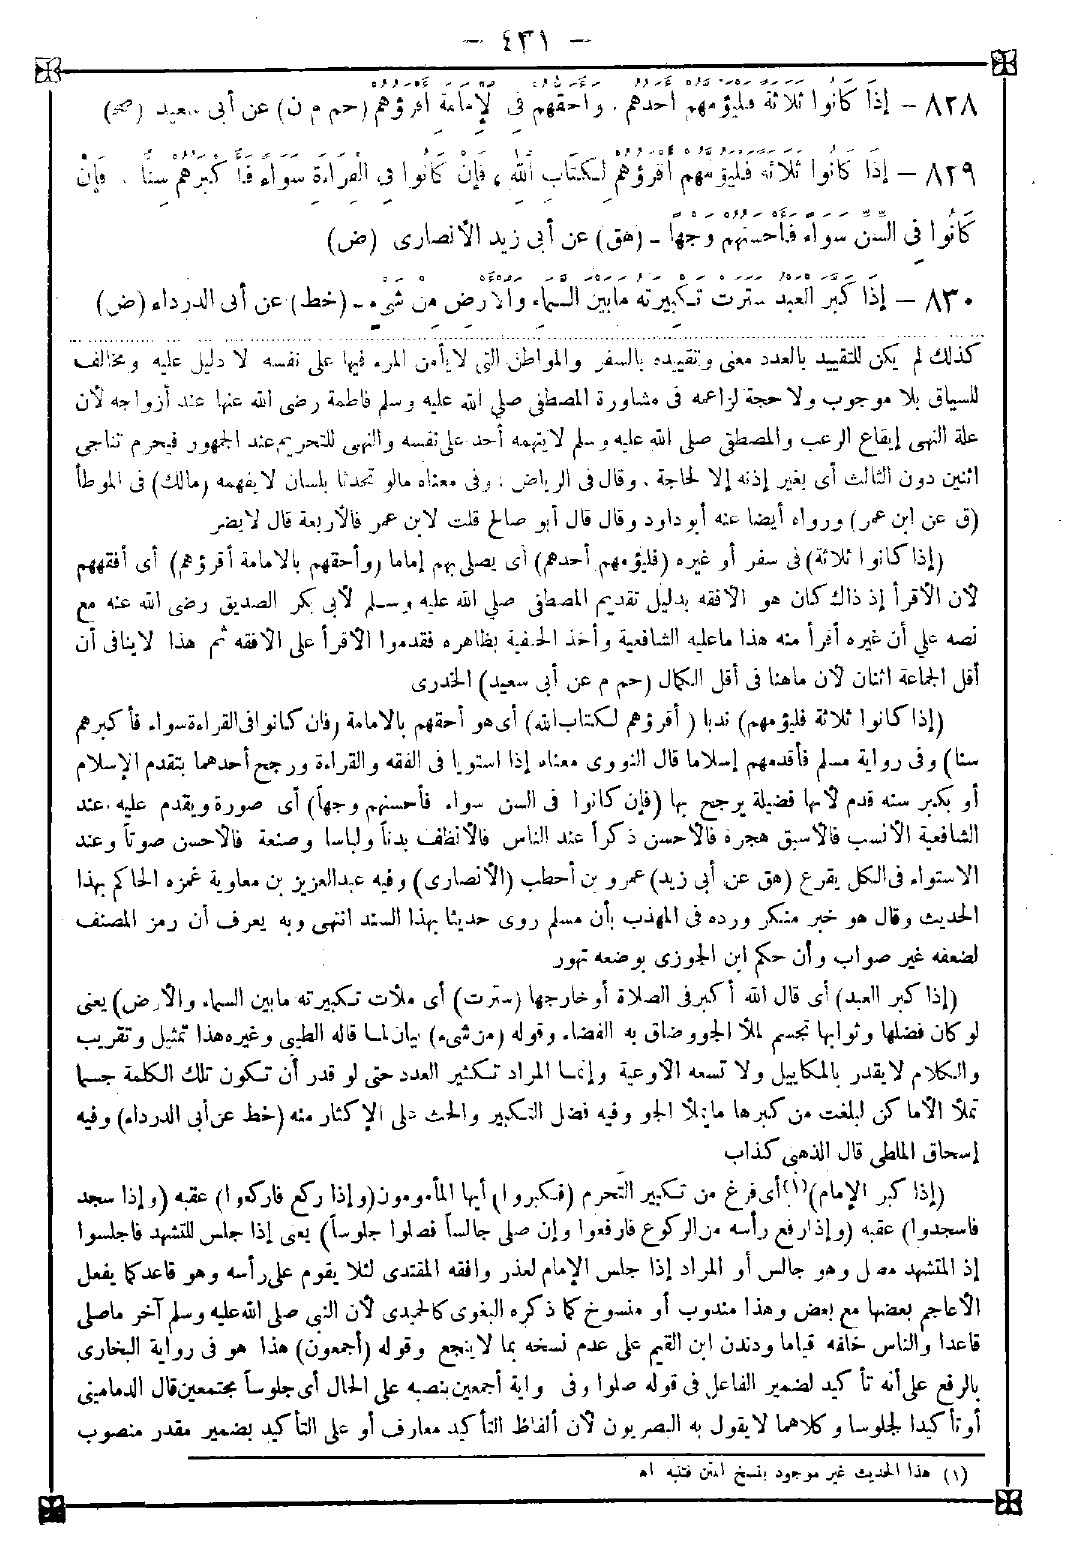 — ٤٣١ —
٨٢٨ — إِذَا كَانُوا ثَلَاثَةً فَلْيَؤُمَّهُمْ أَحَدُهُمْ ، وَأَحَقُّهُمْ بِالْإِمَامَةِ أَقْرَؤُهُمْ (حم م ن) عن أبى سعيد (صح)
٨٢٩ — إِذَا كَانُوا ثَلَاثَةً فَلْيَؤُمَّهُمْ أَقْرَؤُهُمْ لِكِتَابِ اللهِ ، فَإِنْ كَانُوا فِي الْقِرَاءَةِ سَوَاءً فَأَكْبَرُهُمْ سِنًّا ، فَإِنْ
كَانُوا فِي السِّنِّ سَوَاءً فَأَحْسَنُهُمْ وَجْهًا — (هق) عن أبى زيد الأنصارى (ض)
٨٣٠ — إِذَا كَبَّرَ الْعَبْدُ سَتَرَتْ تَكْبِيرَتُهُ مَا بَيْنَ السَّمَاءِ وَالْأَرْضِ مِنْ شَيْءٍ — (خط) عن أبى الدرداء (ض)
كذلك لم يكن للتقييد بالعدد معنى وتقييده بالسفر والمواطن التى لايأمن المرء فيها على نفسه لا دليل عليه ومخالف
للسياق بلا موجوب ولا حجة لزاعمه فى مشاورة المصطفى صلى الله عليه وسلم فاطمة رضى الله عنها عند أزواجه لأن
علة النهى إيقاع الرعب والمصطفى صلى الله عليه وسلم لايتهمه أحد على نفسه والنهى للتحريم عند الجمهور فيحرم تناجى
اثنين دون الثالث أى بغير إذنه إلا لحاجة ، وقال فى الرياض : وفى معناه مالو تحدثا بلسان لايفهمه (مالك) فى الموطأ
(ق عن ابن عمر) ورواه أيضا عنه أبو داود وقال قال أبو صالح قلت لابن عمر فالأربعة قال لايضر
(إذا كانوا ثلاثة) فى سفر أو غيره (فليؤمهم أحدهم) أى يصلى بهم إماما (وأحقهم بالامامة أقرؤهم) أى أفقههم
لأن الأقرأ إذ ذاك كان هو الأفقه بدليل تقديم المصطفى صلى الله عليه وسلم لأبى بكر الصديق رضى الله عنه مع
نصه على أن غيره أقرأ منه هذا ماعليه الشافعية وأخذ الحنفية بظاهره فقدموا الأقرأ على الافقه ثم هذا لاينافى أن
أقل الجماعة اثنان لأن ماهنا فى أقل الكمال (حم م عن أبى سعيد) الخدرى
(إذا كانوا ثلاثة فليؤمهم) ندبا (أقرؤهم لكتاب الله) أى هو أحقهم بالامامة (فان كانوا فى القراءة سواء فأكبرهم
سنا) وفى رواية مسلم فأقدمهم إسلاما قال النووى معناه إذا استويا فى الفقه والقراءة ورجح أحدهما بتقدم الإسلام
أو بكبر سنه قدم لأنها فضيلة يرجح بها (فإن كانوا فى السن سواء فأحسنهم وجهاً) أى صورة ويقدم عليه عند
الشافعية الأنسب فالأسبق هجرة فالأحسن ذكراً عند الناس فالأنظف بدناً ولباسا وصنعة فالأحسن صوتاً وعند
الاستواء فى الكل يقرع (هق عن أبى زيد) عمرو بن أخطب (الأنصارى) وفيه عبدالعزيز بن معاوية غمزه الحاكم بهذا
الحديث وقال هو خبر منكر ورده فى المهذب بأن مسلم روى حديثا بهذا السند انتهى وبه يعرف أن رمز المصنف
لضعفه غير صواب وأن حكم ابن الجوزى بوضعه تهور
(إذا كبر العبد) أى قال الله أكبر فى الصلاة أو خارجها (سترت) أى ملأت تكبيرته مابين السماء والأرض) يعنى
لو كان فضلها وثوابها تجسم لملأ الجو وضاق به الفضاء وقوله (من شىء) بيان لما قاله الطيبى وغيره هذا تمثيل وتقريب
والكلام لايقدر بالمكاييل ولا تسعه الأوعية وإنما المراد تكثير العدد حتى لو قدر أن تكون تلك الكلمة جسما
تملأ الأماكن لبلغت من كبرها مايملأ الجو وفيه فضل التكبير والحث على الإكثار منه (خط عن أبى الدرداء) وفيه
إسحاق الملطى قال الذهبى كذاب
(إذا كبر الإمام)(١) أى فرغ من تكبير التحرم (فكبروا) أيها المأمومون (وإذا ركع فاركعوا) عقبه (وإذا سجد
فاسجدوا) عقبه (وإذا رفع رأسه من الركوع فارفعوا وإن صلى جالساً فصلوا جلوساً) يعنى إذا جلس للتشهد فاجلسوا
إذ المتشهد مصل وهو جالس أو المراد إذا جلس الإمام لعذر وافقه المقتدى لئلا يقوم على رأسه وهو قاعد كما يفعل
الأعاجم بعضها مع بعض وهذا مندوب أو منسوخ كما ذكره البغوى كالحميدى لأن النبى صلى الله عليه وسلم آخر ماصلى
قاعدا والناس خلفه قياما ودندن ابن القيم على عدم نسخه بما لاينجع وقوله (أجمعون) هذا هو فى رواية البخارى
بالرفع على أنه تأكيد لضمير الفاعل فى قوله صلوا وفى رواية أجمعين بنصبه على الحال أى جلوساً مجتمعين قال الدمامينى
أو تأكيدا لجلوسا وكلاهما لايقول به البصريون لأن ألفاظ التأكيد معارف أو على التأكيد بضمير مقدر منصوب
(١) هذا الحديث غير موجود بنسخ المتن فتنبه اه